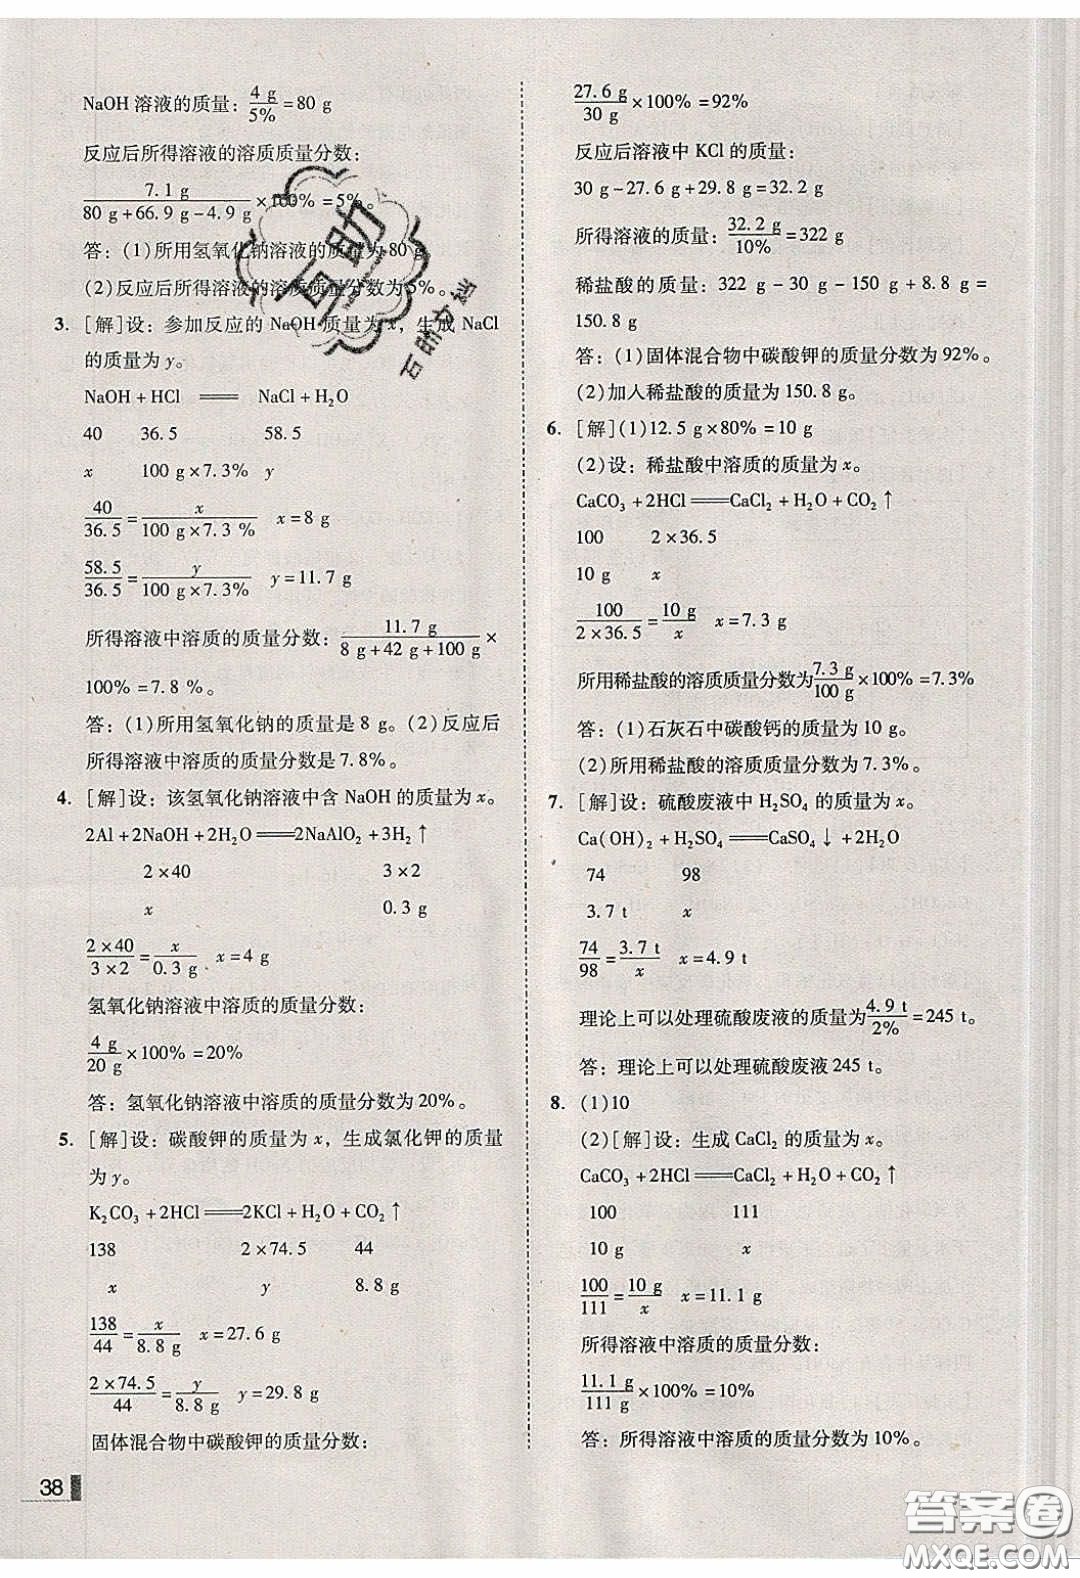 NaOH 溶液的质量：4 g/5% = 80 g
反应后所得溶液的溶质质量分数：
7.1 g/(80 g+66.9 g-4.9 g) ×100% =5%。
答：(1)所用氢氧化钠溶液的质量为80 g
(2)反应后所得溶液的溶质质量分数为5%。
3. [解]设：参加反应的 NaOH 质量为 x，生成 NaCl
的质量为 y。
NaOH + HCl ═══ NaCl + H₂O
40 36.5 58.5
x 100 g×7.3% y
40/36.5 = x/(100 g×7.3 %) x=8 g
58.5/36.5 = y/(100 g×7.3%) y=11.7 g
所得溶液中溶质的质量分数：11.7 g/(8 g+42 g+100 g) ×
100% =7.8 %。
答：(1)所用氢氧化钠的质量是 8 g。(2)反应后
所得溶液中溶质的质量分数是7.8%。
4. [解]设：该氢氧化钠溶液中含 NaOH 的质量为 x。
2Al + 2NaOH + 2H₂O ═══ 2NaAlO₂ + 3H₂↑
2×40 3×2
x 0.3 g
(2×40)/(3×2) = x/0.3 g x=4 g
氢氧化钠溶液中溶质的质量分数：
4 g/20 g ×100% =20%
答：氢氧化钠溶液中溶质的质量分数为20%。
5. [解]设：碳酸钾的质量为 x，生成氯化钾的质量
为 y。
K₂CO₃ +2HCl ═══ 2KCl + H₂O + CO₂↑
138 2×74.5 44
x y 8.8 g
138/44 = x/8.8 g x=27.6 g
(2×74.5)/44 = y/8.8 g y=29.8 g
固体混合物中碳酸钾的质量分数：
38
27.6 g/30 g ×100% =92%
反应后溶液中 KCl 的质量：
30 g-27.6 g+29.8 g=32.2 g
所得溶液的质量：32.2 g/10% =322 g
稀盐酸的质量：322 g-30 g-150 g+8.8 g=
150.8 g
答：(1)固体混合物中碳酸钾的质量分数为92%。
(2)加入稀盐酸的质量为150.8 g。
6. [解](1)12.5 g×80% =10 g
(2)设：稀盐酸中溶质的质量为 x。
CaCO₃ +2HCl ═══ CaCl₂ +H₂O+CO₂↑
100 2×36.5
10 g x
100/(2×36.5) = 10 g/x x=7.3 g
所用稀盐酸的溶质质量分数为7.3 g/100 g ×100% =7.3%
答：(1)石灰石中碳酸钙的质量为10 g。
(2)所用稀盐酸的溶质质量分数为7.3%。
7. [解]设：硫酸废液中 H₂SO₄ 的质量为 x。
Ca(OH)₂ + H₂SO₄ ═══ CaSO₄↓ + 2H₂O
74 98
3.7 t x
74/98 = 3.7 t/x x=4.9 t
理论上可以处理硫酸废液的质量为4.9 t/2% =245 t。
答：理论上可以处理硫酸废液245 t。
8. (1)10
(2)[解]设：生成 CaCl₂ 的质量为 x。
CaCO₃ +2HCl ═══ CaCl₂ + H₂O + CO₂↑
100 111
10 g x
100/111 = 10 g/x x=11.1 g
所得溶液中溶质的质量分数：
11.1 g/111 g ×100% =10%
答：所得溶液中溶质的质量分数为10%。
答案圈
MXQE.COM